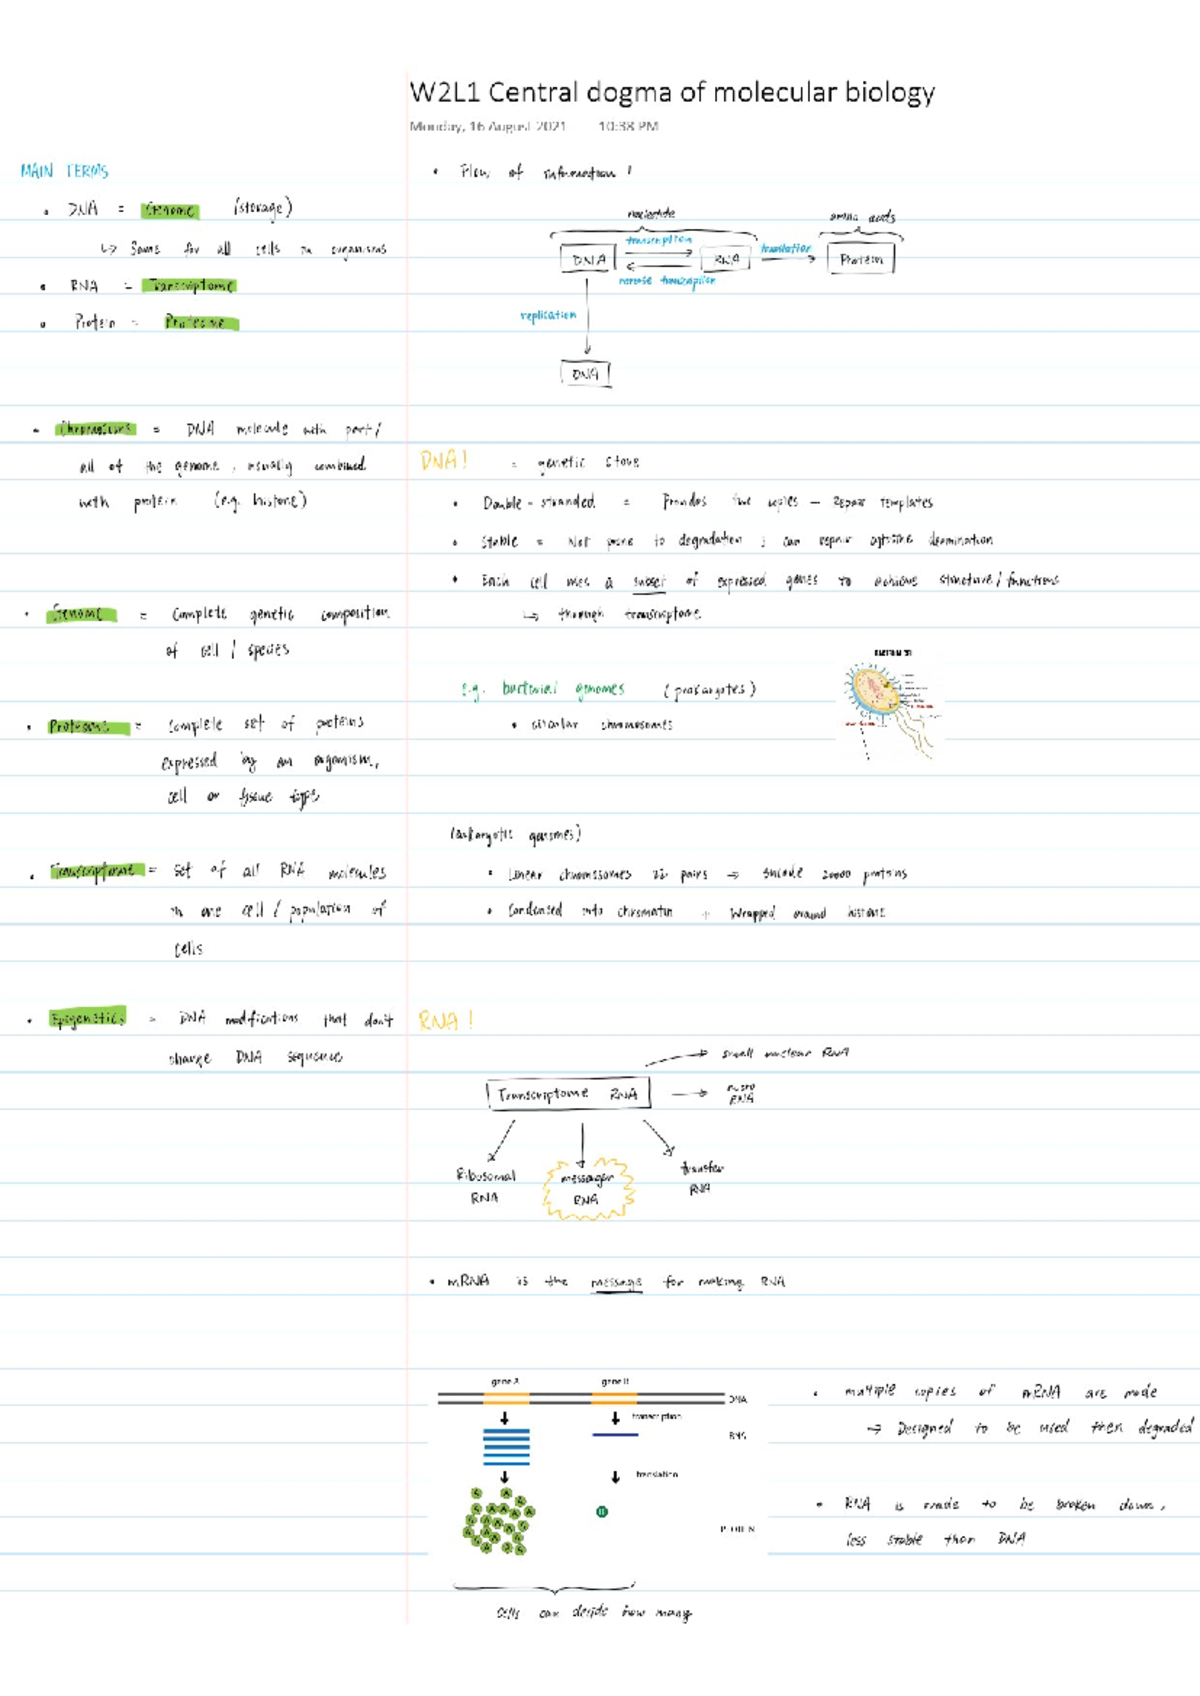 W2L1 Central dogma of molecular biology
Monday, 16 August 2021 10:38 PM
MAIN TERMS
• DNA = Genome (storage)
↳ Same for all cells in organisms
• RNA = Transcriptome
• Protein = Proteome
• Chromosome = DNA molecule with part/
all of the genome, usually combined
with protein (e.g. histone)
• Genome = Complete genetic composition
of cell / species
• Proteome = Complete set of proteins
expressed by an organism,
cell or tissue type
• Transcriptome = set of all RNA molecules
in one cell / population of
cells
• Epigenetics = DNA modifications that don't
change DNA sequence
• Flow of information!
nucleotide
amino acids
transcription
DNA
RNA
translation
Protein
reverse transcription
replication
DNA
DNA! = genetic store
• Double-stranded = Provides two copies — Repair templates
• Stable = Not prone to degradation ; can repair cytosine deamination
• Each cell uses a subset of expressed genes to achieve structure / functions
↳ through transcriptome
e.g. bacterial genomes (prokaryotes)
• circular chromosomes
(eukaryotic genomes)
• Linear chromosomes 22 pairs → encode 20000 proteins
• Condensed into chromatin + Wrapped around histone
RNA!
small nuclear RNA
Transcriptome RNA
micro
RNA
Ribosomal
RNA
messenger
RNA
transfer
RNA
• mRNA is the message for making RNA
gene A
gene B
DNA
transcription
RNA
translation
PROTEIN
cells can decide how many
• multiple copies of mRNA are made
→ Designed to be used then degraded
• RNA is made to be broken down,
less stable than DNA